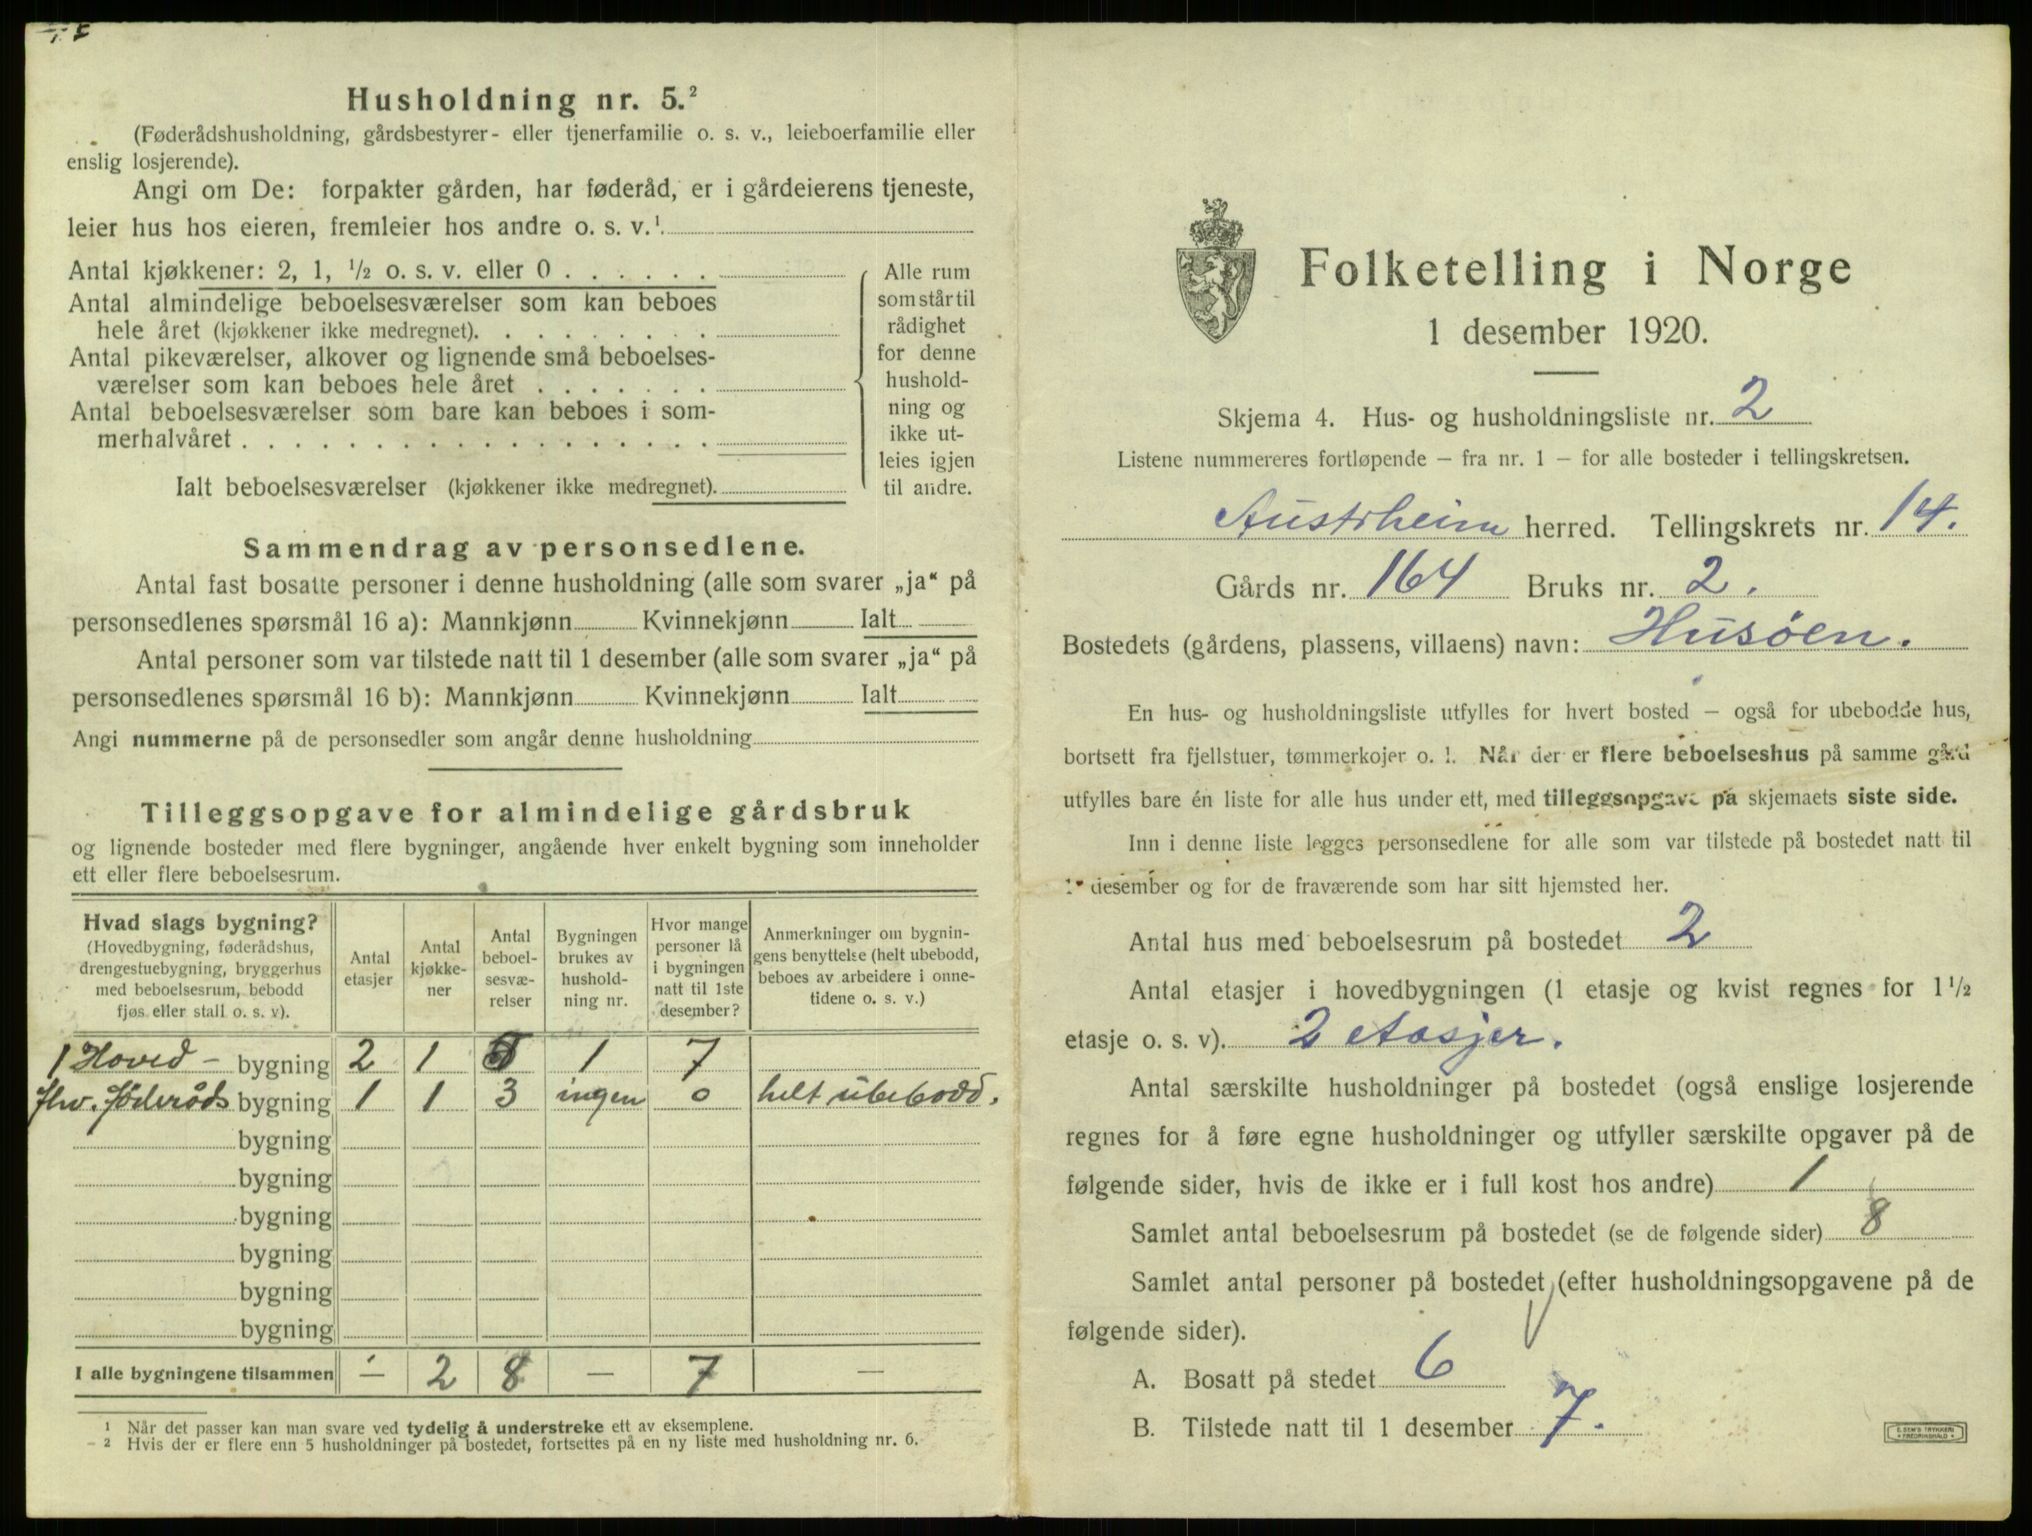 Husholdning nr. 5.²
(Føderådshusholdning, gårdsbestyrer- eller tjenerfamilie o. s. v., leieboerfamilie eller
enslig losjerende).
Angi om De: forpakter gården, har føderåd, er i gårdeierens tjeneste,
leier hus hos eieren, fremleier hos andre o. s. v.¹
Antal kjøkkener: 2, 1, ½ o. s. v. eller 0 . . . . . .
Antal almindelige beboelsesværelser som kan beboes
hele året (kjøkkener ikke medregnet). . . . . . . . .
Antal pikeværelser, alkover og lignende små beboelses-
værelser som kan beboes hele året . . . . . . .
Antal beboelsesværelser som bare kan beboes i som-
merhalvåret . . . . . . . . . . . . . . . . . .
Ialt beboelsesværelser (kjøkkener ikke medregnet).
Alle rum
som står til
rådighet
for denne
hushold-
ning og
ikke ut-
leies igjen
til andre.
Sammendrag av personsedlene.
Antal fast bosatte personer i denne husholdning (alle som svarer „ja“ på
personsedlenes spørsmål 16 a): Mannkjønn Kvinnekjønn Ialt
Antal personer som var tilstede natt til 1 desember (alle som svarer „ja“ på
personsedlenes spørsmål 16 b): Mannkjønn Kvinnekjønn Ialt
Angi nummerne på de personsedler som angår denne husholdning
Tilleggsopgave for almindelige gårdsbruk
og lignende bosteder med flere bygninger, angående hver enkelt bygning som inneholder
ett eller flere beboelsesrum.
Hvad slags bygning?
(Hovedbygning, føderådshus,
drengestuebygning, bryggerhus
med beboelsesrum, bebodd
fjøs eller stall o. s. v).
Antal
etasjer
Antal
kjøkke-
ner
Antal
beboel-
sesvæ-
relser
Bygningen
brukes av
hushold-
ning nr.
Hvor mange
personer lå
i bygningen
natt til 1ste
desember?
Anmerkninger om bygnin-
gens benyttelse (helt ubebodd,
beboes av arbeidere i onne-
tidene o. s. v.)
1 Hoved- bygning 2 1 5 1 7
Føderåds bygning 1 1 3 ingen 0 helt ubebodd.
bygning
bygning
bygning
bygning
bygning
bygning
I alle bygningene tilsammen — 2 8 — 7 —
¹ Når det passer kan man svare ved tydelig å understreke ett av eksemplene.
² Hvis der er flere enn 5 husholdninger på bostedet, fortsettes på en ny liste med husholdning nr. 6.
Folketelling i Norge
1 desember 1920.
Skjema 4. Hus- og husholdningsliste nr. 2
Listene nummereres fortløpende — fra nr. 1 — for alle bosteder i tellingskretsen.
Austrheim herred. Tellingskrets nr. 14.
Gårds nr. 164 Bruks nr. 2.
Bostedets (gårdens, plassens, villaens) navn: Husøen.
En hus- og husholdningsliste utfylles for hvert bosted — også for ubebodde hus,
bortsett fra fjellstuer, tømmerkojer o. l. Når der er flere beboelseshus på samme gård
utfylles bare én liste for alle hus under ett, med tilleggsopgave på skjemaets siste side.
Inn i denne liste legges personsedlene for alle som var tilstede på bostedet natt til
1 desember og for de fraværende som har sitt hjemsted her.
Antal hus med beboelsesrum på bostedet 2
Antal etasjer i hovedbygningen (1 etasje og kvist regnes for 1½
etasje o. s. v). 2 etasjer.
Antal særskilte husholdninger på bostedet (også enslige losjerende
regnes for å føre egne husholdninger og utfyller særskilte opgaver på de
følgende sider, hvis de ikke er i full kost hos andre) 1
Samlet antal beboelsesrum på bostedet (se de følgende sider) 8
Samlet antal personer på bostedet (efter husholdningsopgavene på de
følgende sider).
A. Bosatt på stedet 6
B. Tilstede natt til 1 desember 7.
E. SEM'S TRYKKERI
FREDRIKSHALD